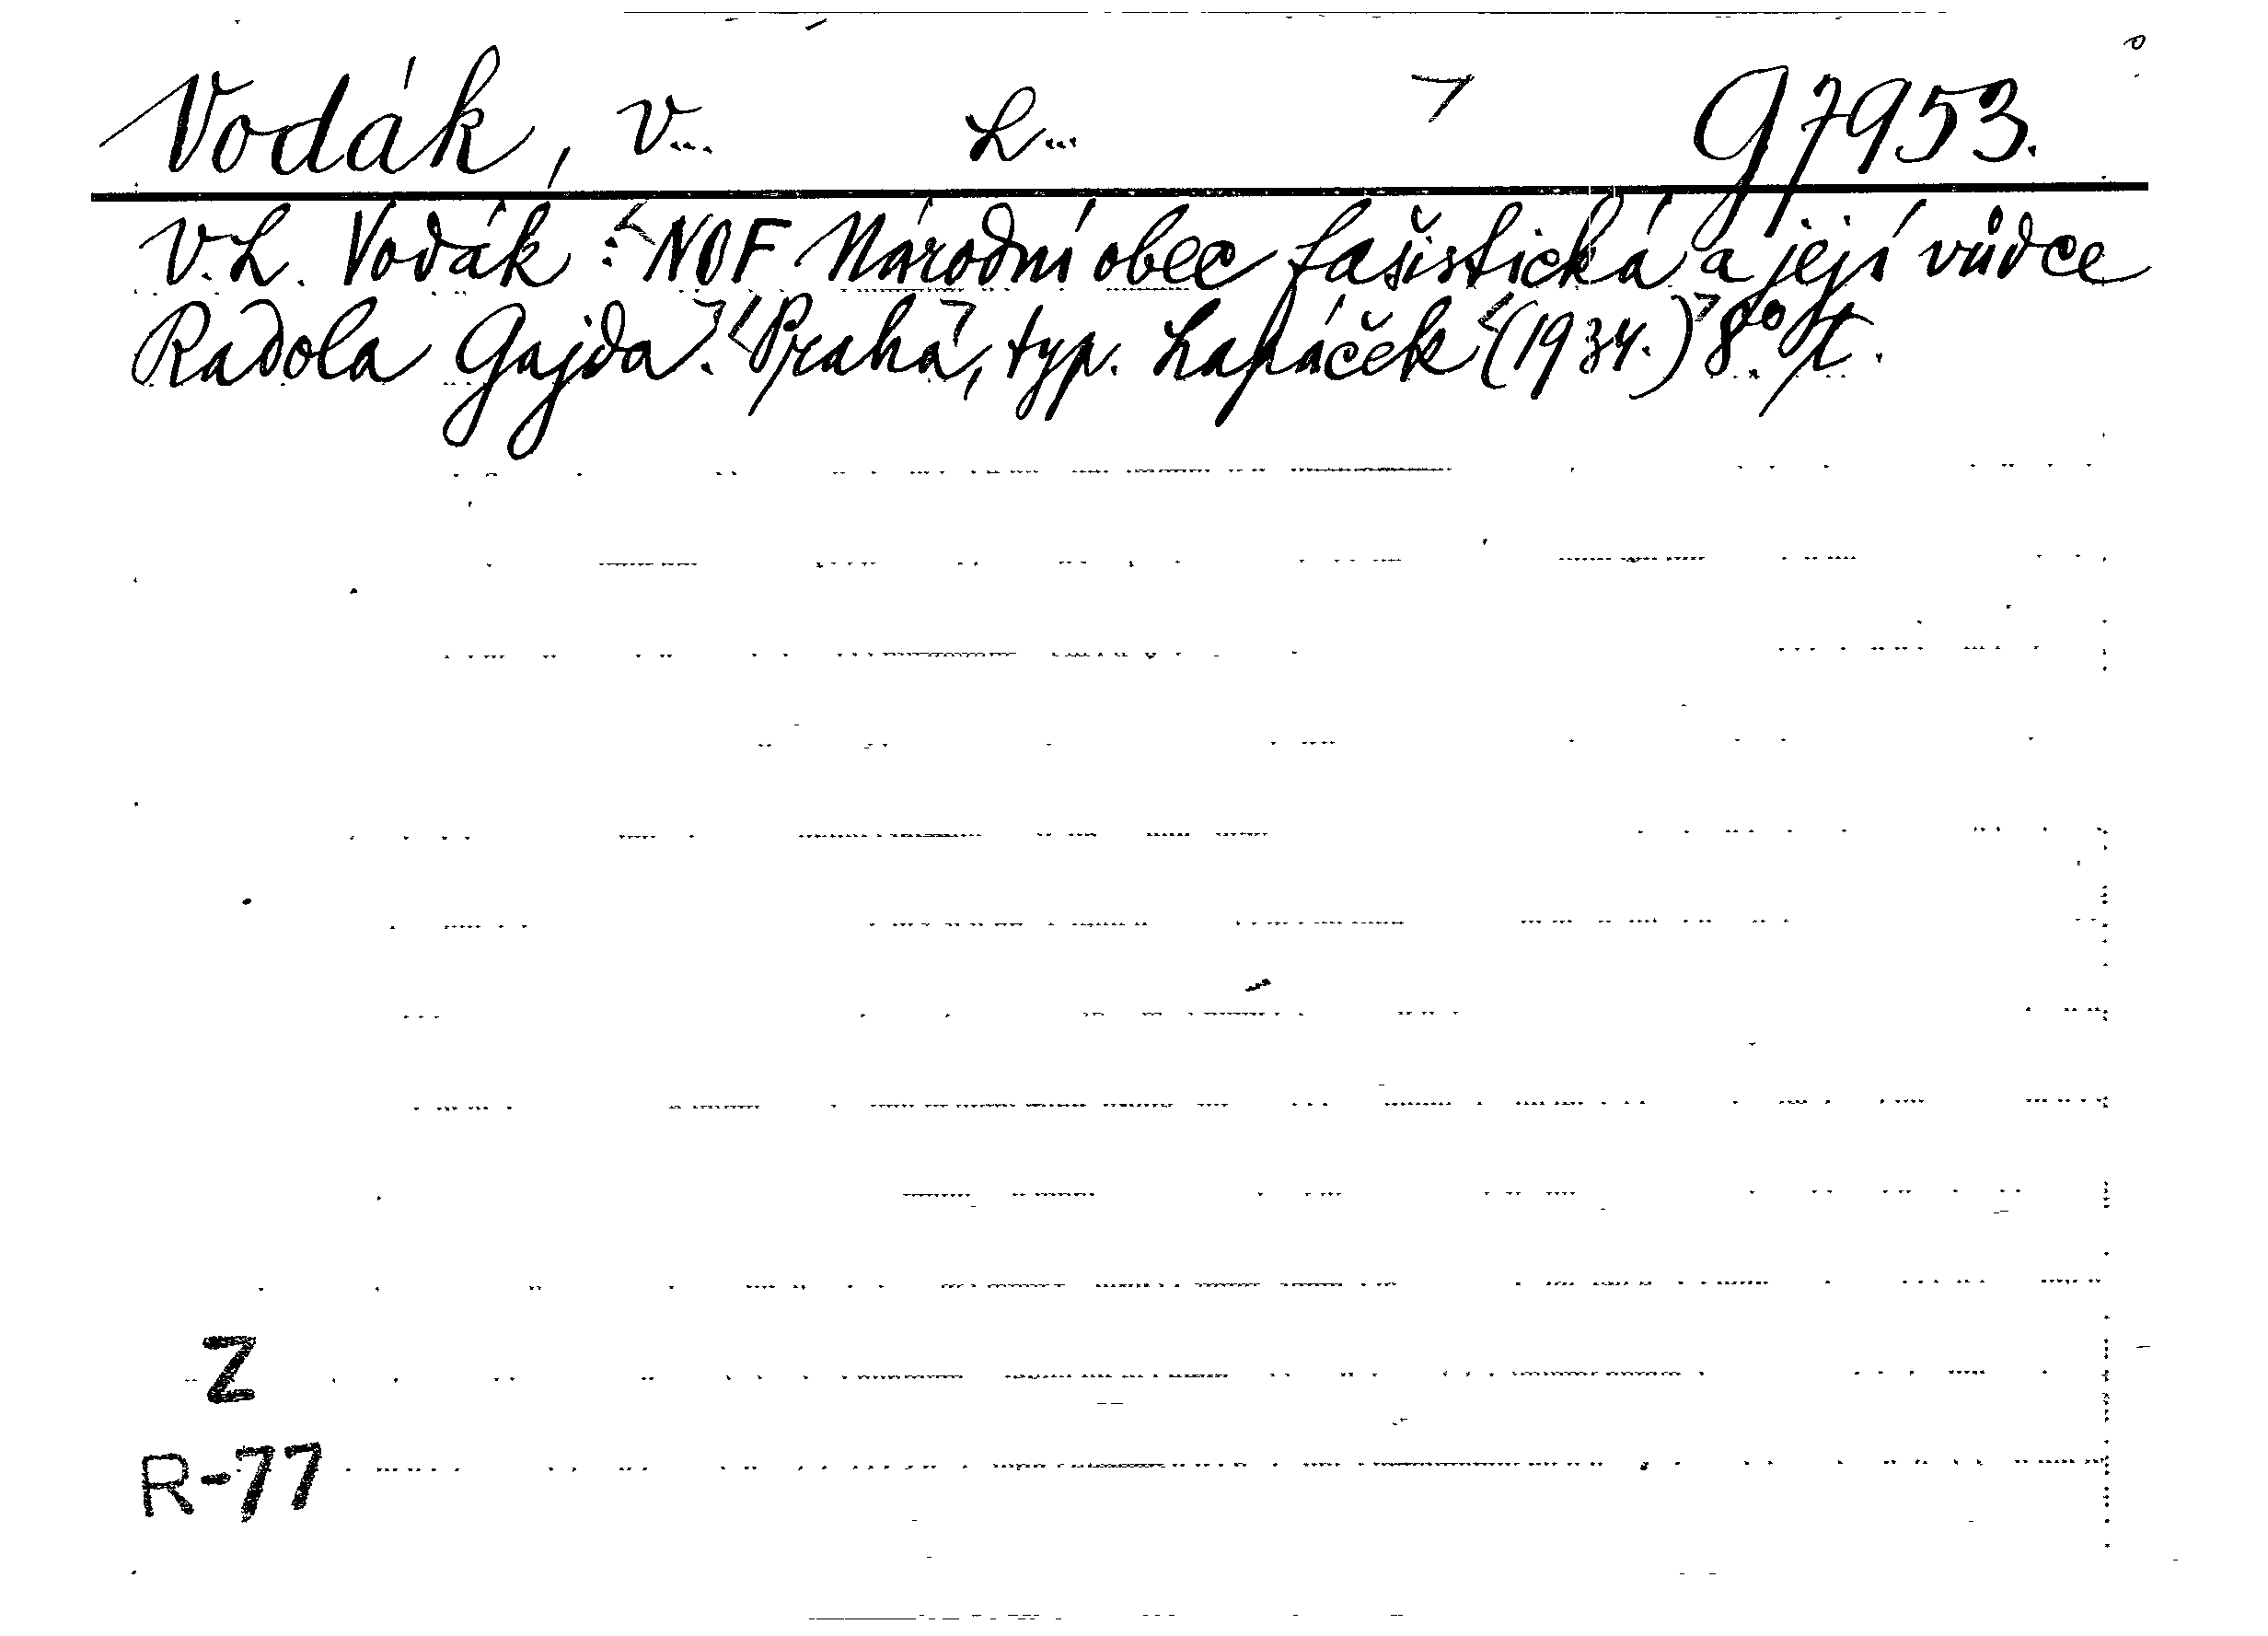 Vodák, V... L... G 7953.
V. L. Vodák: NOF Národní obec fašistická a její vůdce
Radola Gajda. Praha, typ. Lapáček (1934.) 8° t.
Z
R-77